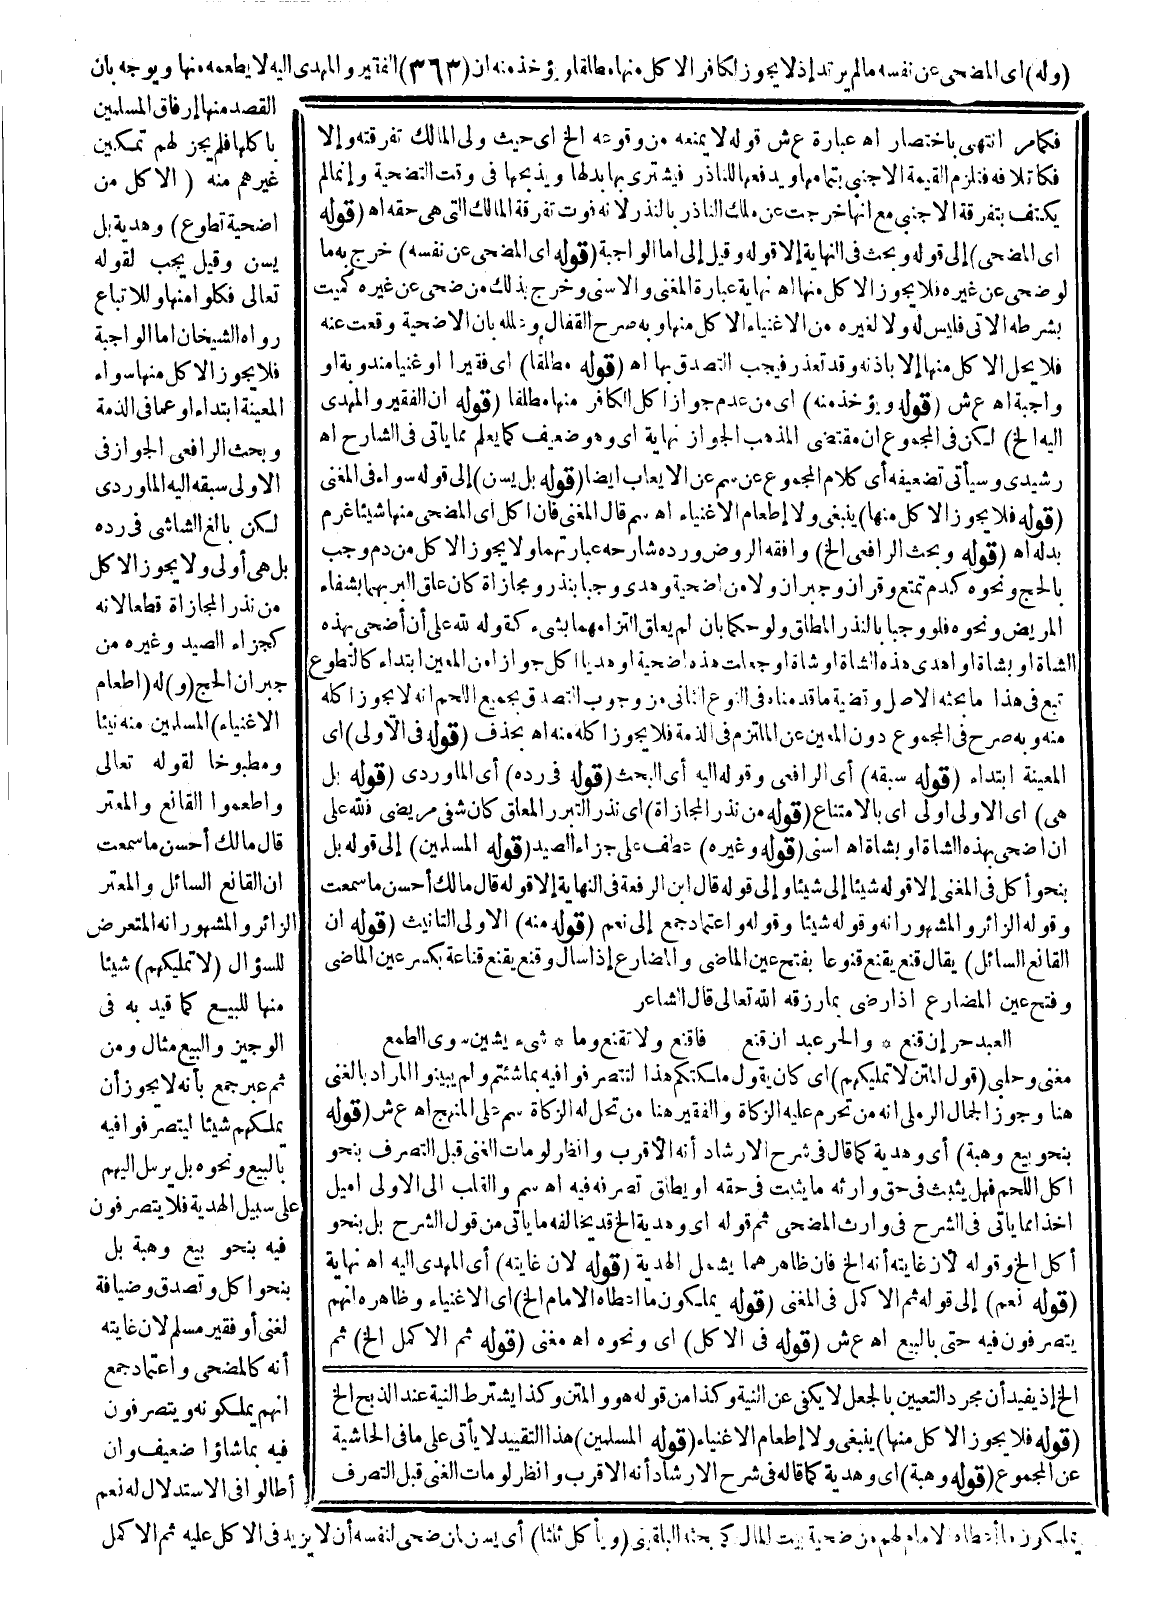 (وله) اى المضحى عن نفسه مالم يرتد إذ لا يجوز لكافر الاكل منها مطلقا ويؤخذ منه ان (٣٦٣) الفقير والمهدى اليه لا يطعمه منها ويوجه بان
القصد منها إرفاق المسلمين
باكلها فلم يجز لهم تمكين
غيرهم منه ( الاكل من
اضحية تطوع) وهدية بل
يسن وقيل يجب لقوله
تعالى فكلوا منها وللاتباع
رواه الشيخان اما الواجبة
فلا يجوز الاكل منها سواء
المعينة ابتداء او عما فى الذمة
وبحث الرافعى الجواز فى
الاولى سبقه اليه الماوردى
لكن بالغ الشاشى فى رده
بل هى أولى ولا يجوز الاكل
من نذر المجازاة قطعا لانه
كجزاء الصيد وغيره من
جبران الحج (و) له (اطعام
الاغنياء) المسلمين منه نيئا
ومطبوخا لقوله تعالى
واطعموا القانع والمعتر
قال مالك أحسن ما سمعت
ان القانع السائل والمعتر
الزائر والمشهور انه المتعرض
للسؤال (لا تمليكهم) شيئا
منها للبيع كما قيد به فى
الوجيز والبيع مثال ومن
ثم عبر جمع بأنه لا يجوز أن
يملكهم شيئا ليتصرفوا فيه
بالبيع ونحوه بل يرسل اليهم
على سبيل الهدية فلا يتصرفون
فيه بنحو بيع وهبة بل
بنحو اكل وتصدق وضيافة
لغنى أو فقير مسلم لان غايته
أنه كالمضحى واعتماد جمع
انهم يملكونه ويتصرفون
فيه بما شاؤا ضعيف وان
أطالوا فى الاستدلال له نعم
يملكون ما أعطاه الامام لهم من ضحية بيت المال كما بحثه البلقينى (ويأكل ثلثا) أى يسن لمن ضحى لنفسه أن لا يزيد فى الاكل عليه ثم الاكمل
فكما مر انتهى باختصار اه عبارة ع ش قوله لا يمنعه من وقوعه الخ اى حيث ولى المالك تفرقته وإلا
فكاتلافه فتلزم القيمة الاجنبى بتمامها ويدفعها للناذر فيشترى بها بدلها ويذبحها فى وقت التضحية وإنما لم
يكتف بتفرقة الاجنبى مع انها خرجت عن ملك الناذر بالنذر لانه فوت تفرقة المالك التى هى حقه اه (قوله
اى المضحى) إلى قوله وبحث فى النهاية إلا قوله وقيل إلى اما الواجبة (قوله اى المضحى عن نفسه) خرج به ما
لو ضحى عن غيره فلا يجوز الاكل منها اه نهاية عبارة المغنى والاسنى وخرج بذلك من ضحى عن غيره كميت
بشرطه الاتى فليس له ولا لغيره من الاغنياء الاكل منها وبه صرح القفال وعلله بان الاضحية وقعت عنه
فلا يحل الاكل منها إلا باذنه وقد تعذر فيجب التصدق بها اه (قوله مطلقا) اى فقيرا او غنيا مندوبة او
واجبة اه ع ش (قوله ويؤخذ منه) اى من عدم جواز اكل الكافر منها مطلقا (قوله ان الفقير والمهدى
اليه الخ) لكن فى المجموع ان مقتضى المذهب الجواز نهاية اى وهو ضعيف كما يعلم مما ياتى فى الشارح اه
رشيدى وسيأتى تضعيفه أى كلام المجموع عن سم عن الايعاب ايضا (قوله بل يسن) إلى قوله سواء فى المغنى
(قوله فلا يجوز الاكل منها) ينبغى ولا إطعام الاغنياء اه سم قال المغنى فان اكل اى المضحى منها شيئا غرم
بدله اه (قوله وبحث الرافعى الخ) وافقه الروض ورده شارحه عبارتهما ولا يجوز الاكل من دم وجب
بالحج ونحوه كدم تمتع وقران وجبران ولا من اضحية وهدى وجبا بنذر ومجازاة كان علق البر بهما بشفاء
المريض ونحوه فلو وجبا بالنذر المطلق ولو حكما بان لم يعلق التزامهما بشىء كقوله لله على أن أضحى بهذه
الشاة او بشاة او اهدى هذه الشاة او شاة او جعلت هذه اضحية او هديا اكل جوازا من المعين ابتداء كالتطوع
تبع فى هذا ما بحثه الاصل وقضية ما قدمناه فى النوع الثانى من وجوب التصدق بجميع اللحم انه لا يجوز اكله
منه وبه صرح فى المجموع دون المعين عن الملتزم فى الذمة فلا يجوز اكله منه اه بحذف (قوله فى الاولى) اى
المعينة ابتداء (قوله سبقه) أى الرافعى وقوله اليه أى البحث (قوله فى رده) أى الماوردى (قوله بل
هى) اى الاولى اولى اى بالامتناع (قوله من نذر المجازاة) اى نذر التبرر المعلق كان شفى مريضى فلله على
ان اضحى بهذه الشاة او بشاة اه اسنى (قوله وغيره) عطف على جزاء الصيد (قوله المسلمين) إلى قوله بل
بنحو أكل فى المغنى إلا قوله شيئا إلى شيئا وإلى قوله قال ابن الرفعة فى النهاية إلا قوله قال مالك أحسن ما سمعت
وقوله الزائر والمشهور انه وقوله شيئا وقوله واعتماد جمع إلى نعم (قوله منه) الاولى التانيث (قوله ان
القانع السائل) يقال قنع يقنع قنوعا بفتح عين الماضى والمضارع إذا سال وقنع يقنع قناعة بكسر عين الماضى
وفتح عين المضارع اذا رضى بما رزقه الله تعالى قال الشاعر
العبد حر إن قنع * والحر عبد ان قنع فاقنع ولا تقنع وما * شىء يشين سوى الطمع
مغنى وحلبى (قول المتن لا تمليكهم) اى كان يقول ملكتكم هذا لتتصرفوا فيه بما شئتم ولم يبينوا المراد بالغنى
هنا وجوز الجمال الرملى انه من تحرم عليه الزكاة والفقير هنا من تحل له الزكاة سم على المنهج اه ع ش (قوله
بنحو بيع وهبة) أى وهدية كما قال فى شرح الارشاد أنه الاقرب وانظر لو مات الغنى قبل التصرف بنحو
اكل اللحم فهل يثبت فى حق وارثه ما يثبت فى حقه او يطلق تصرفه فيه اه سم والقلب الى الاولى اميل
اخذا مما ياتى فى الشرح فى وارث المضحى ثم قوله اى وهدية الخ قد يخالفه ما ياتى من قول الشرح بل بنحو
أكل الخ وقوله لان غايته أنه الخ فان ظاهرهما يشمل الهدية (قوله لان غايته) أى المهدى اليه اه نهاية
(قوله نعم) إلى قوله ثم الاكمل فى المغنى (قوله يملكون ما اعطاه الامام الخ) اى الاغنياء وظاهره انهم
يتصرفون فيه حتى بالبيع اه ع ش (قوله فى الاكل) اى ونحوه اه مغنى (قوله ثم الاكمل الخ) ثم
الخ إذ يفيد أن مجرد التعيين بالجعل لا يكفى عن النية وكذا من قوله هو والمتن وكذا يشترط النية عند الذبح الخ
(قوله فلا يجوز الاكل منها) ينبغى ولا إطعام الاغنياء (قوله المسلمين) هذا التقييد لا يأتى على ما فى الحاشية
عن المجموع (قوله وهبة) اى وهدية كما قاله فى شرح الارشاد أنه الاقرب وانظر لو مات الغنى قبل التصرف